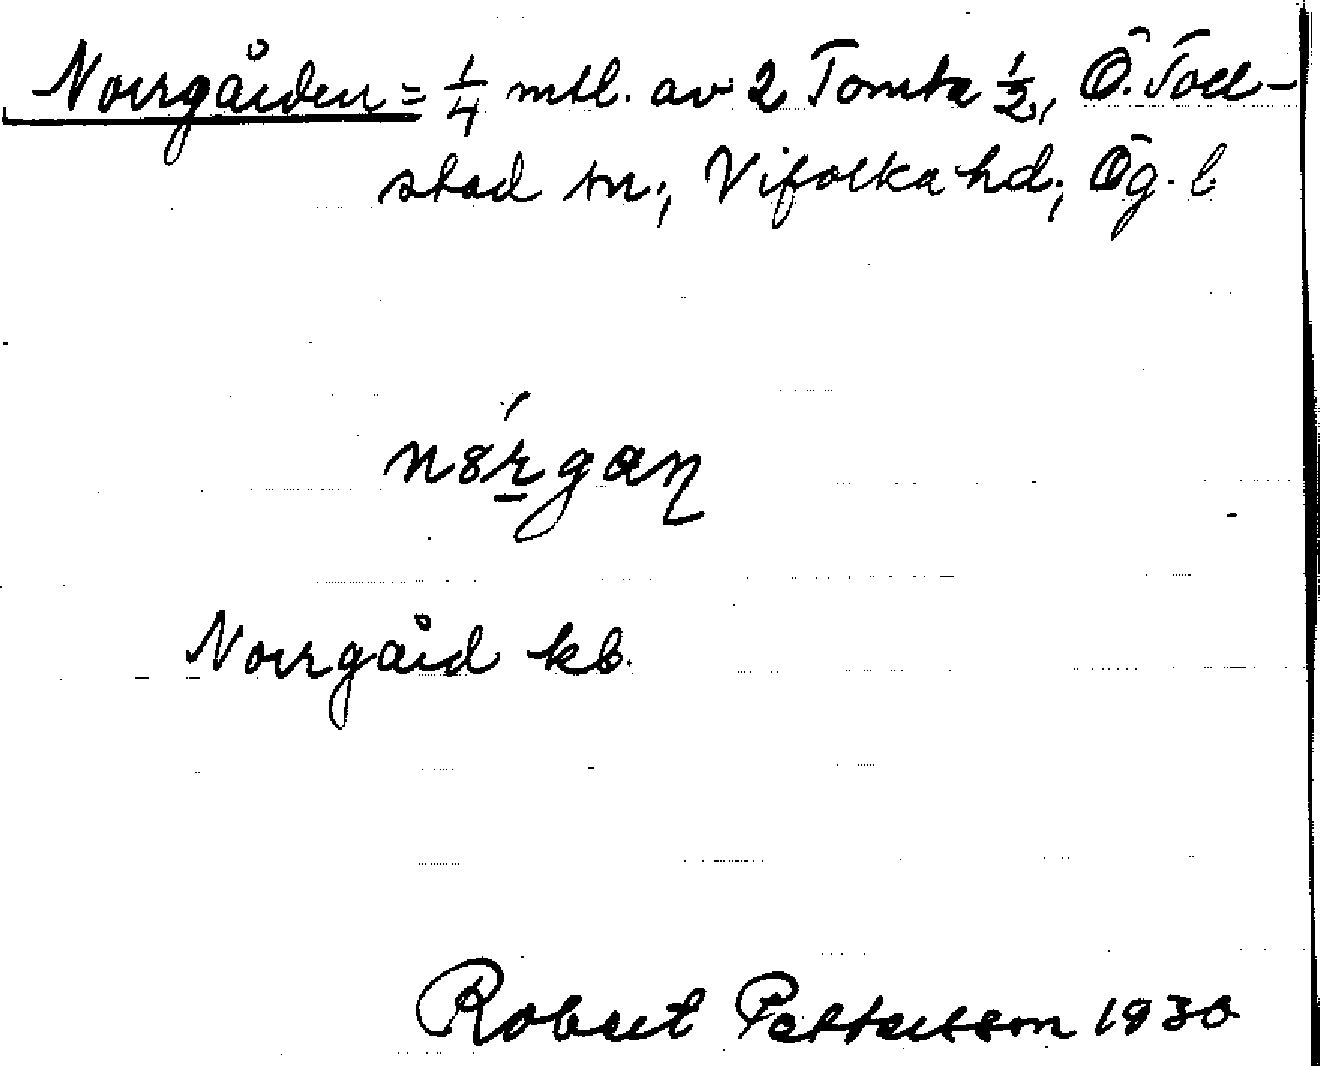 Norrgården = 1/4 mtl. av 2 Tomta 1/2, Ö. Toll-
stad sn; Vifolka hd; Ög. l
Norrgård kb.
Robert Pettersson 1930